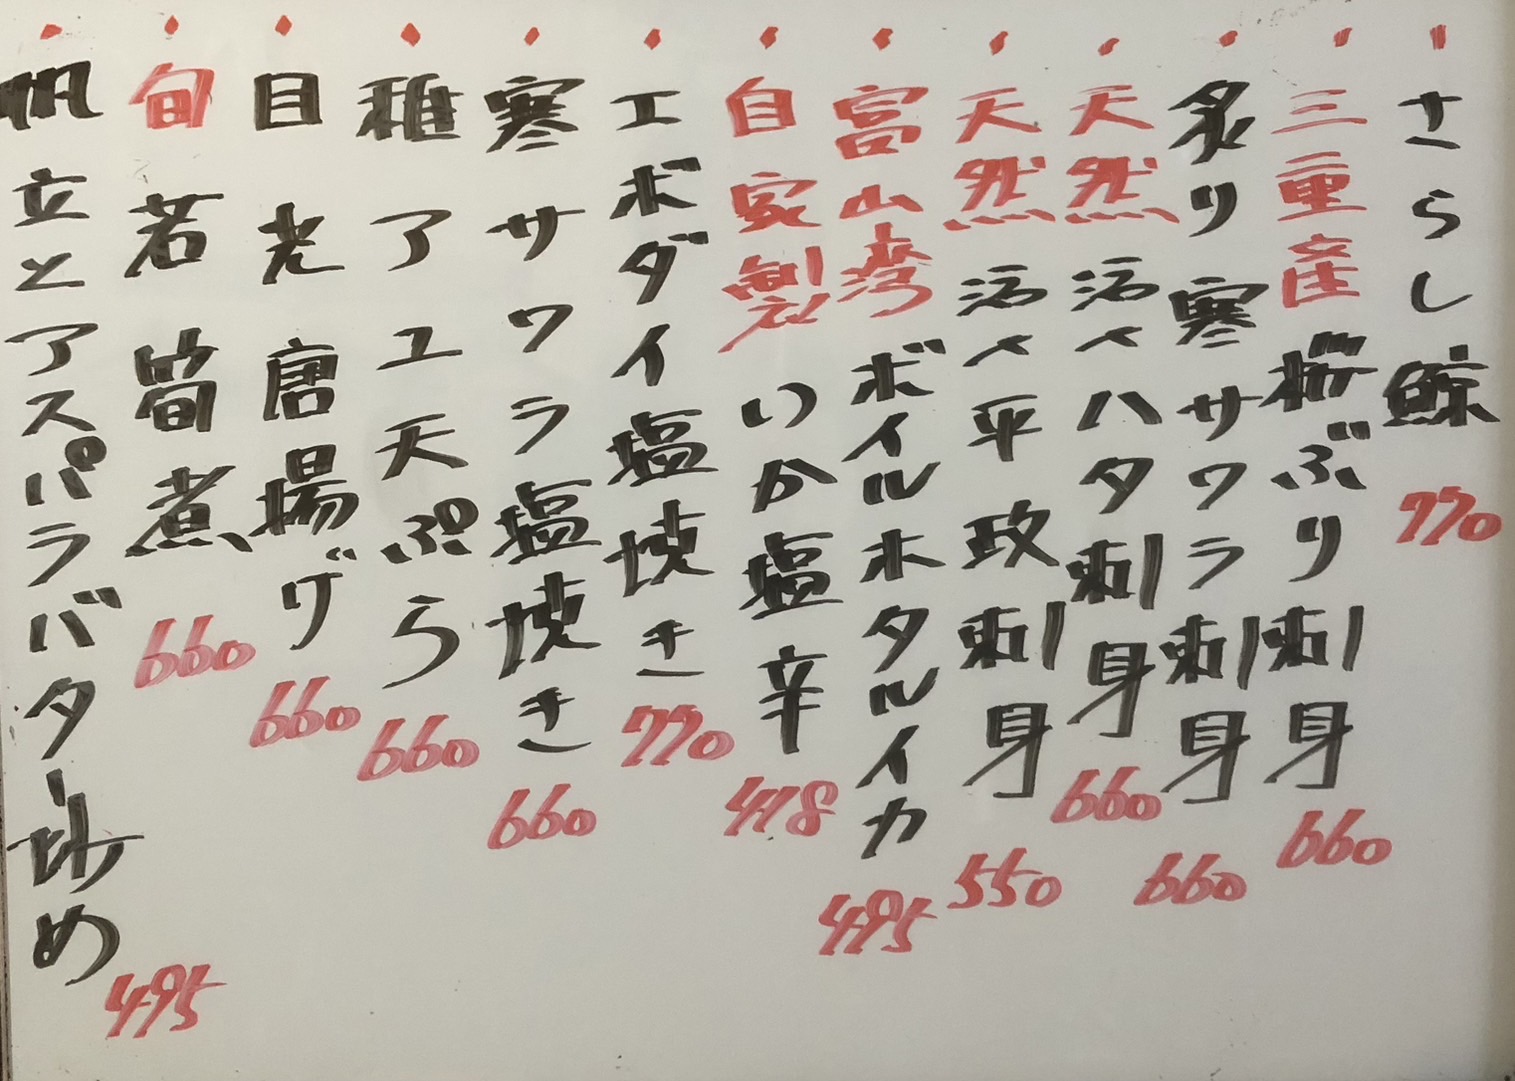 さらし鯨 770
三重産 桜ぶり刺身 660
炙り寒サワラ刺身 660
天然 活〆ハタ刺身 660
天然 活〆平政刺身 550
富山湾 ボイルホタルイカ 495
自家製 いか塩辛 418
エボダイ塩焼き 770
寒サワラ塩焼き 660
稚アユ天ぷら 660
目光唐揚げ 660
旬 若筍煮 660
帆立とアスパラバター炒め 495